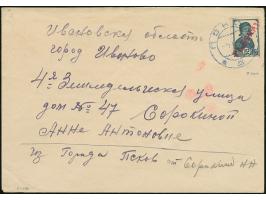 Ивановская область
город Иваново
4я Земледельческая улица
дом № 47 Сорокиной
Анне Антоновне
Из города Псков от Сорокиной АН